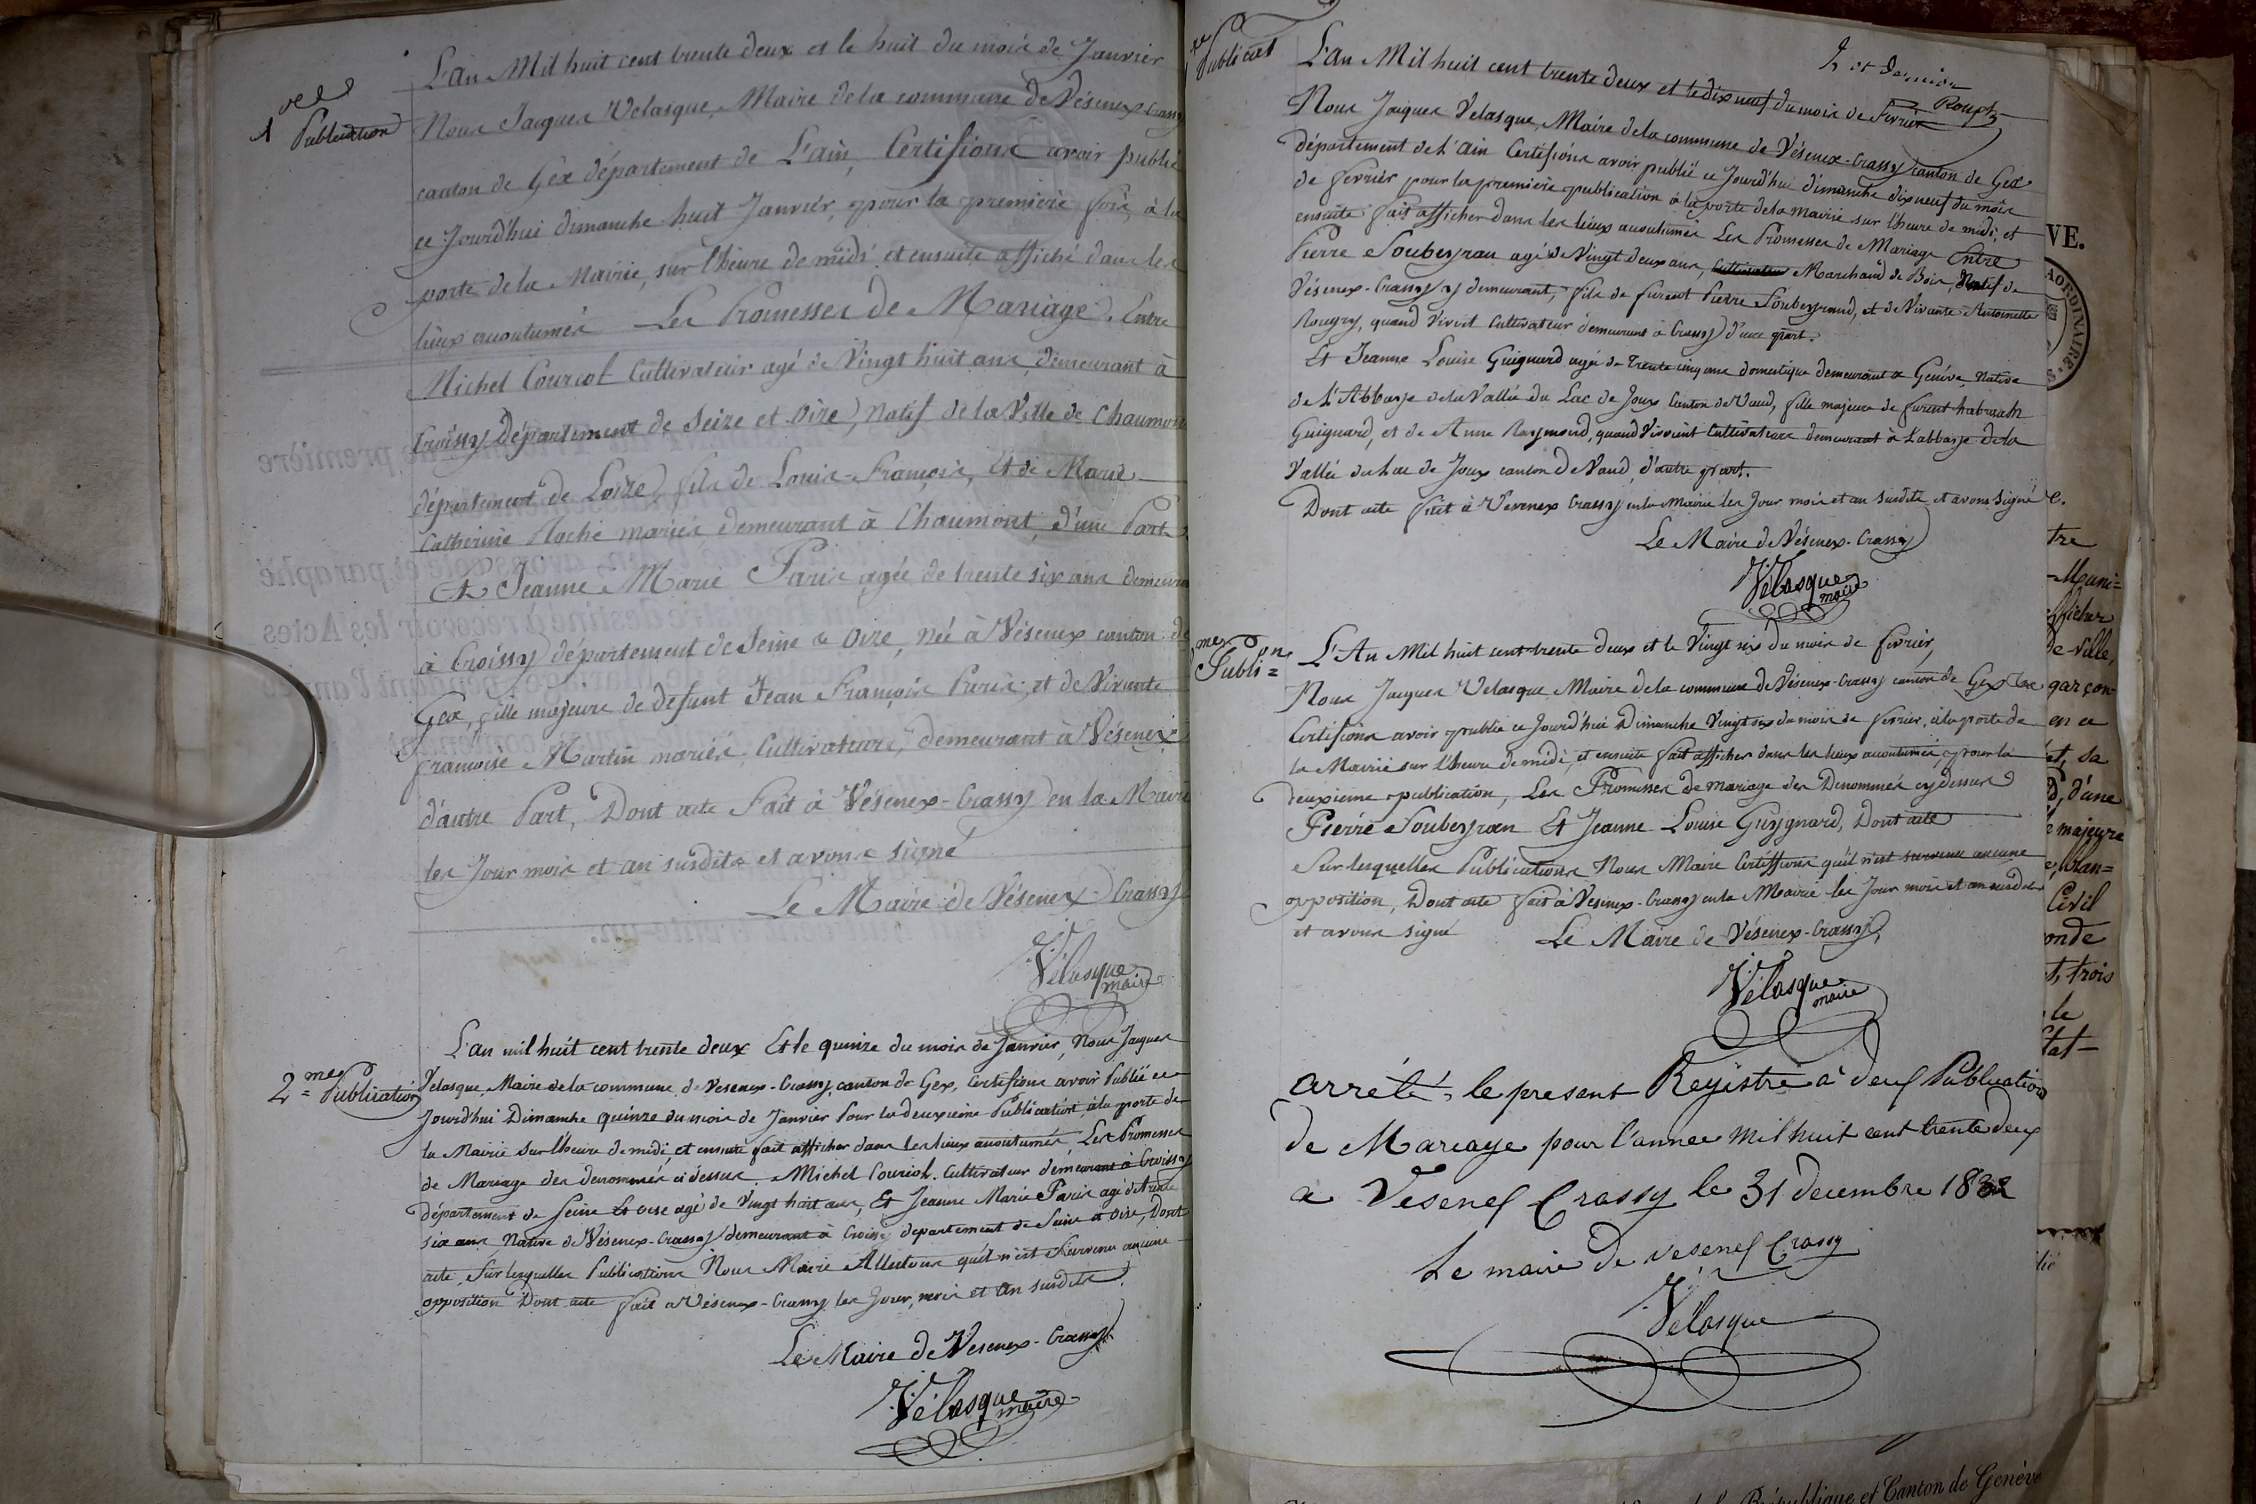 1ere
Publication
L'an Mil huit cent trente deux et le huit du mois de Janvier
Nous Jacques Velasque, Maire de la commune de Vésenex-Crassy
canton de Gex département de L'ain, Certifions avoir publié
ce Jourd'hui dimanche huit Janvier, pour la premiere fois, à la
porte de la Mairie, sur l'heure de midi et ensuite affiché dans les
lieux accoutumés Les Promesses de Mariage. Entre
Michel Courcol Cultivateur agé de Vingt huit ans, demeurant à
Croissy Département de Seize et Oize, Natif de la Ville de Chaumont
département de Loize, fils de Louis-François, et de Marie
Catherine Hoché mariés demeurant à Chaumont, d'une Part.
Et Jeanne Marie Paris agée de trente six ans demeurant
à Croissy département de Seine & Oize, née à Vésenex canton de
Gex, fille majeure de defunt Jean François Paris et de Vivante
françoise Martin mariés Cultivateurs, demeurant à Vésenex
d'autre Part, Dont acte Fait à Vésenex-Crassy en la Mairie
les Jour mois et an susdits et avons signé
Le Maire de Vésenex-Crassy
Velasque
maire
2me
Publication
L'an mil huit cent trente deux Et le quinze du mois de Janvier, Nous Jacques
Velasque, Maire de la commune de Vesenex-Crassy, canton de Gex, Certifions avoir Publié ce
Jourd'hui Dimanche quinze du mois de Janvier Pour la deuxieme Publication à la porte de
la Mairie Sur l'heure de midi, et ensuite fait afficher dans les lieux accoutumés, Les Promesses
de Mariage des denommés ci dessus, Michel Courcol, Cultivateur demeurant à Croissy
département de Seine Et oise agé de Vingt huit ans, Et Jeanne Marie Paris agé de trente
six ans Native de Vésenex-Crassy demeurant à Croissy departement de Seine et Oise, Dont
acte, Sur lesquelles Publications Nous Maire Attestons qu'il n'est Survenu aucune
opposition Dont acte fait a Vésenex-Crassy les Jour, mois et An susdits.
Le Maire de Vesenex-Crassy
Velasque
maire
2 et dernier
Publicat
L'an Mil huit cent trente deux et le dix neuf du mois de Fevrier
Nous Jaques Velasque, Maire de la commune de Vésenex-Crassy canton de Gex
département de L'ain Certifions avoir publié ce Jourd'hui dimanche dix neuf du mois
de fevrier pour la premiere publication à la porte de la Mairie sur l'heure de midi, et
ensuite fait afficher dans les lieux accoutumés Les Promesses de Mariage Entre
Pierre Soubeyran agé de Vingt deux ans, Cultivateur Marchand de Bois, Natif de
Vésenex-Crassy y demeurant, fils de furent Pierre Soubeyrand, et de Vivante Antoinette
Rougry, quand vivoit Cultivateur demeurant à Crassy d'une part.
Et Jeanne Louise Guignard agée de trente cinq ans domestique demeurant à Genève Native
de L'Abbaye de la Vallée du Lac de Joux Canton de Vaud, fille majeure de furent habraah
Guignard, et de Anne Raymond, quand Vivoint Cultivateurs demeurant à L'abbaye de la
Vallée du Lac de Joux canton de Vaud, d'autre part.
Dont acte fait à Vesenex Crassy en la Mairie les Jour mois et an susdits et avons signé
Le Maire de Vésenex-Crassy
Velasque
maire
me
Publi=
L'An Mil huit cent trente deux et le Vingt six du mois de fevrier,
Nous Jacques Velasque Maire de la commune de Vésenex-Crassy canton de Gex
Certifions avoir publié ce Jourd'hui Dimanche Vingt six du mois de fevrier, à la porte de
la Mairie sur l'heure de midi, et ensuite fait afficher dans les lieux accoutumés, pour la
deuxieme publication, Les Promesses de mariage des Denommés cy dessus
Pierre Soubeyran Et Jeanne Louise Guygnard, Dont acte
Sur lesquelles Publications Nous Maire Certiffions qu'il n'est survenu aucune
opposition, Dont acte fait à Vesenex-Crassy en la Mairie les Jour mois et an susdits
et avons signé Le Maire de Vésenex-Crassy,
Velasque
maire
arrêté, le present Registre à deux Publication
de Mariage pour l'annee mil huit cent trente deux
a Vesenex Crassy le 31 decembre 1832
Le maire de vesenex Crassy
Velasque
VE.
AORDINAIRE
tre
-Muni=
fficher
de-ville,
garçon
en ce
et, sa
d'une
majeure
Civil
onde
t, trois
le
tat-
République et Canton de Genève